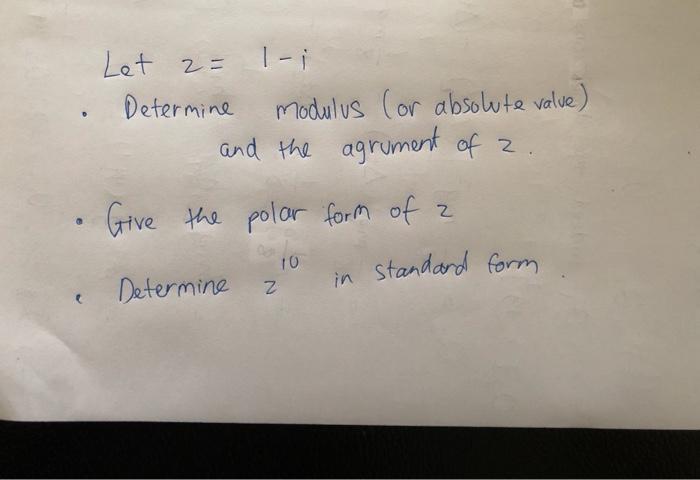 Let z = 1-i
• Determine modulus (or absolute value)
and the agrument of z.
• Give the polar form of z
• Determine z^10 in standard form.